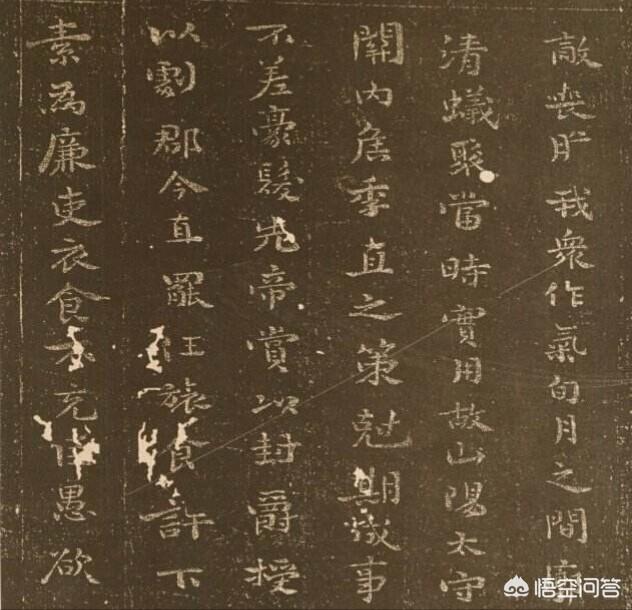 敵喪胆我衆作氣旬月之間廓
清蟻聚當時實用故山陽太守
關内侯季直之策尅期成事
不差豪髮先帝賞以封爵授
以劇郡今直罷任旅食許下
素為廉吏衣食不充臣愚欲
悟空问答